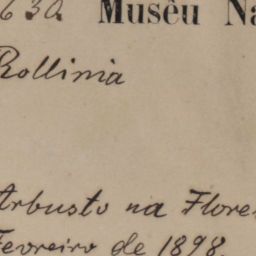 630. Musêu Na
Rollinia
Arbusto na Flore
Fevreiro de 1898.